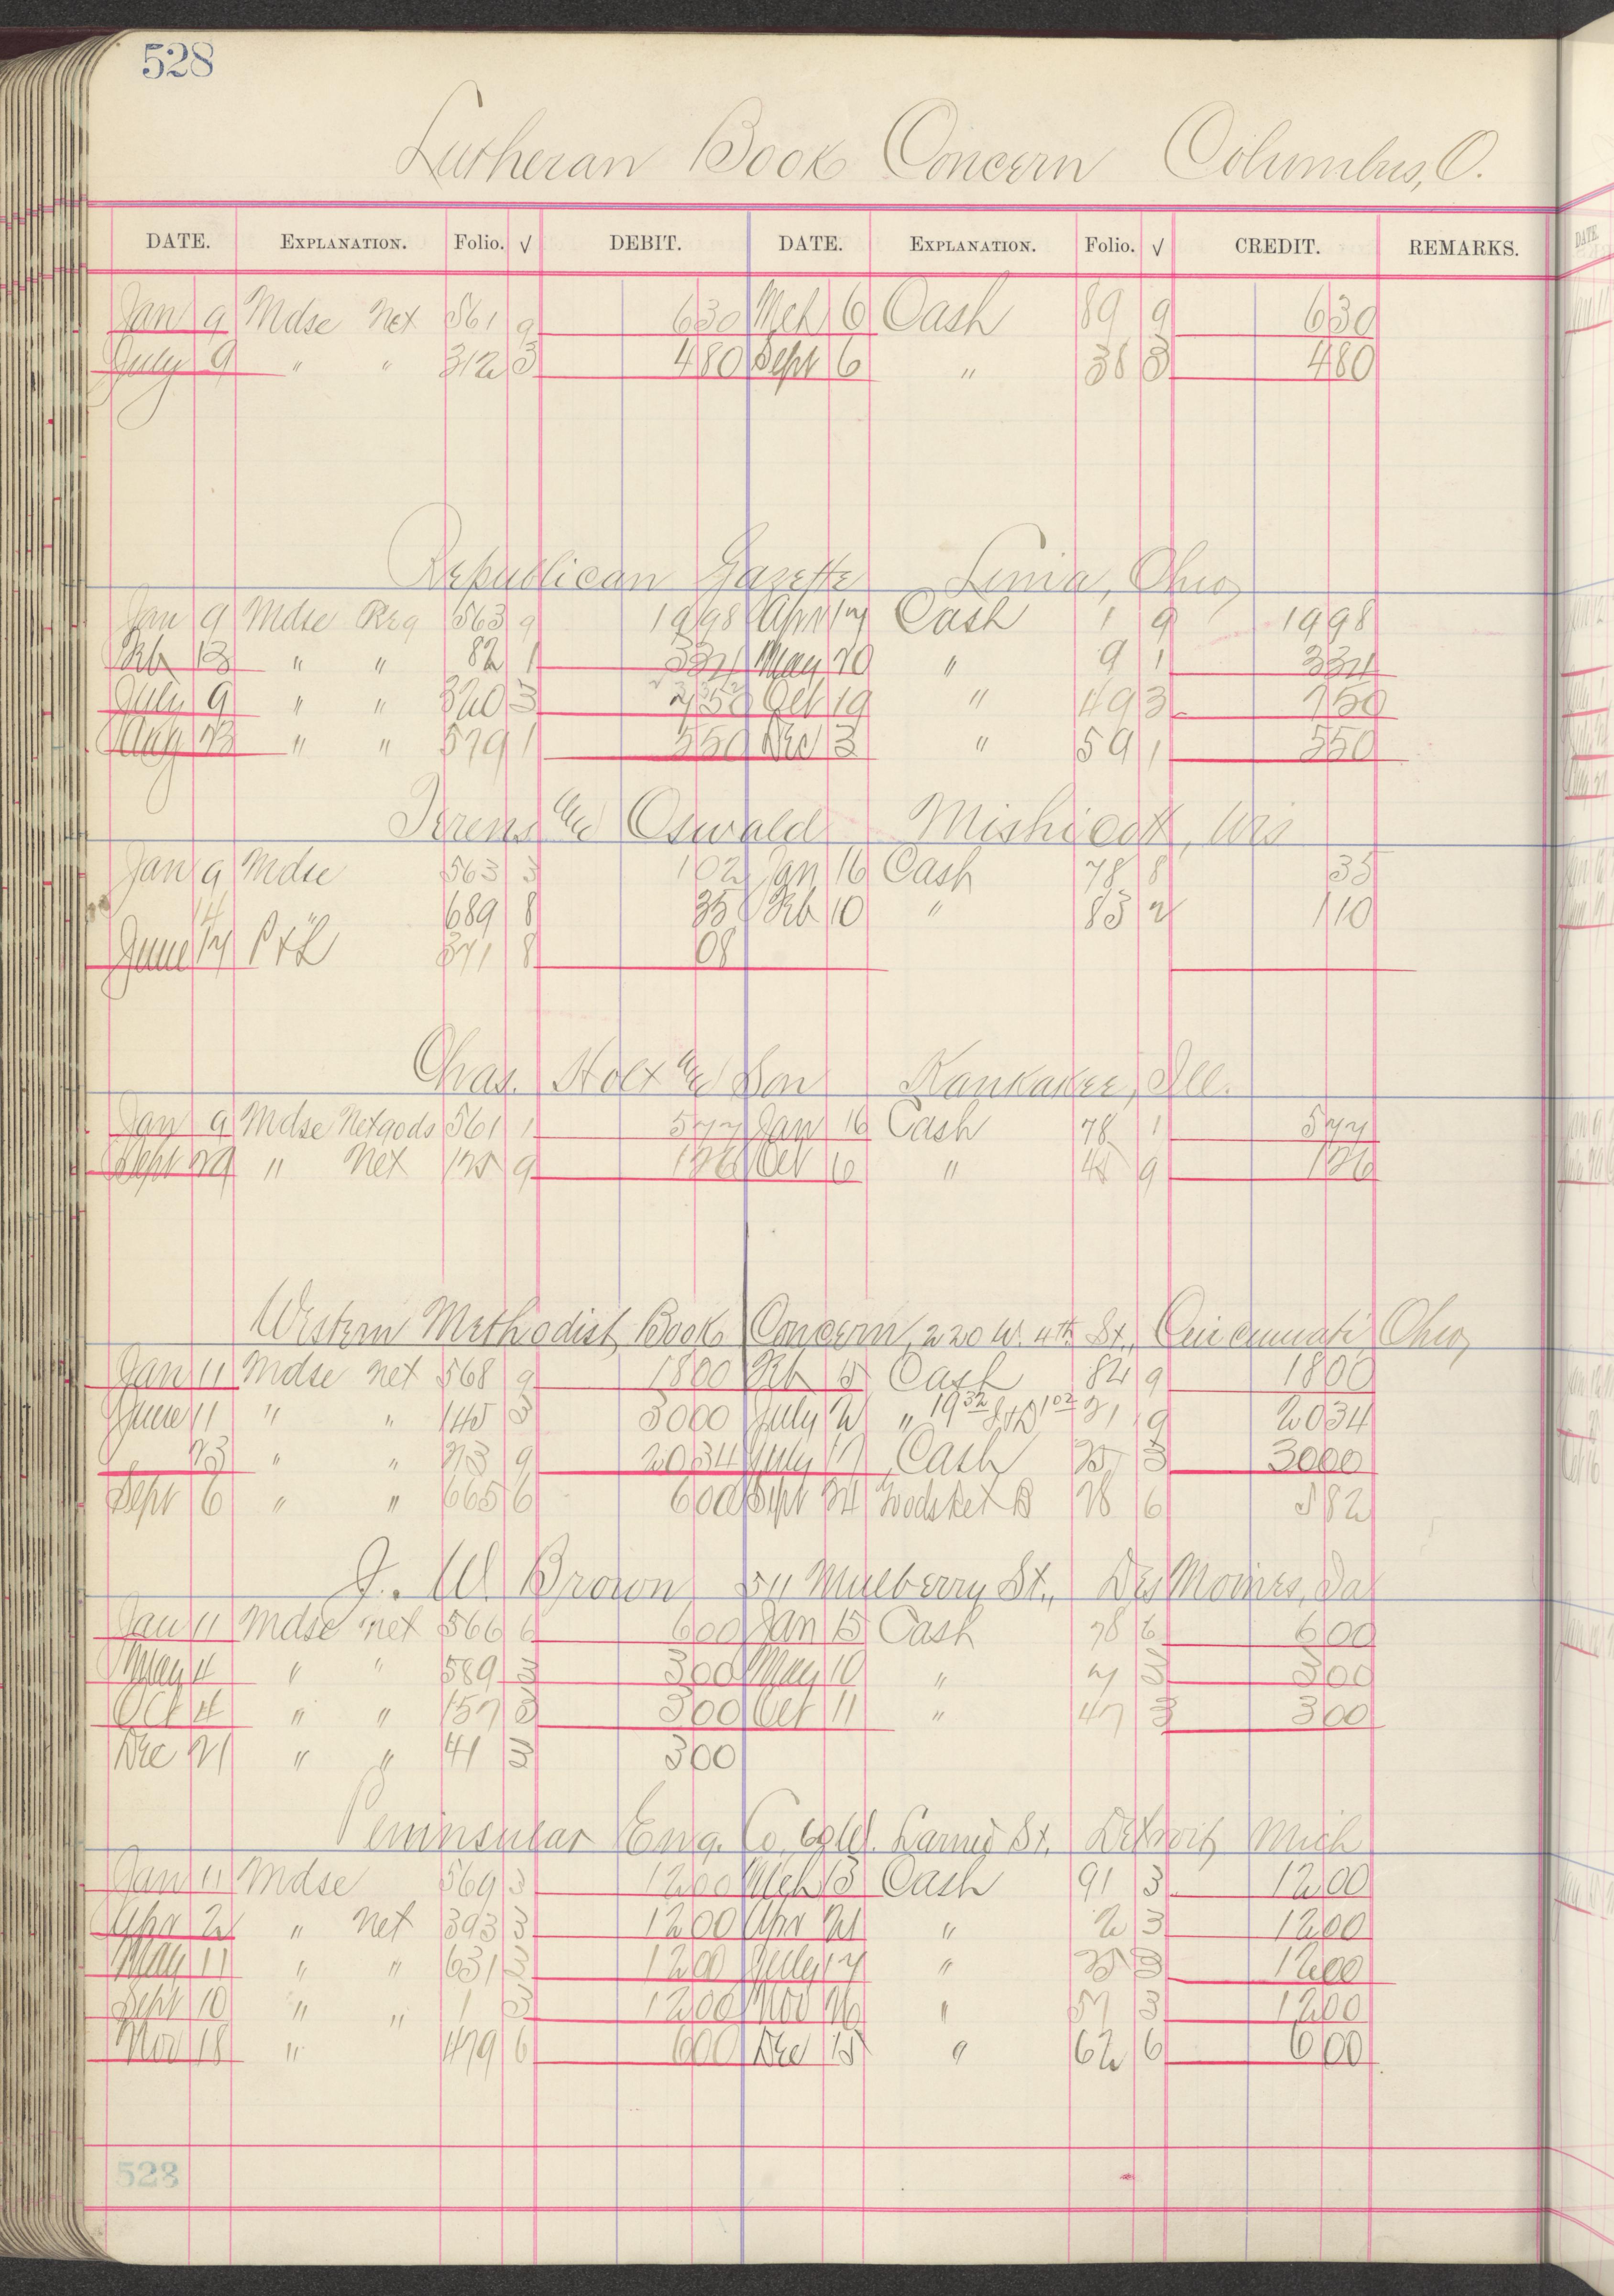 528
Lutheran Book Concern Columbus, O.
DATE. EXPLANATION. Folio. √ DEBIT. DATE. EXPLANATION. Folio. √ CREDIT. REMARKS.
Jan 9 Mdse Net 561 9 630 Mch 6 Cash 89 9 630
July 9 " " 312 3 480 Sept 6 " 38 3 480
Republican Gazette Lima, Ohio
Jan 9 Mdse Reg 563 9 1998 Apr 17 Cash 1 9 1998
Feb 13 " " 82 1 334 May 20 " 9 1 334
July 9 " " 320 3 750 Oct 19 " 49 3 750
Aug 23 " " 579 1 550 Dec 3 " 59 1 550
Oswald Mishicot, Wis
Jan 9 Mdse 563 3 102 Jan 16 Cash 78 8 35
14 " 689 8 35 Feb 10 " 85 2 110
June 17 P & L 371 8 08
Chas. Holt & Son Kankakee, Ill.
Jan 9 Mdse Netgods 561 1 577 Jan 16 Cash 78 1 577
Sept 29 " Net 125 9 126 Oct 6 " 45 9 126
Western Methodist Book Concern, 220 W. 4th St., Cincinnati Ohio
Jan 11 Mdse net 568 9 1800 Feb 5 Cash 84 9 1800
June 11 " " 145 3 3000 July 2 " 19 32 102 21 9 2034
23 " " 273 9 2034 July 17 Cash 25 3 3000
Sept 6 " " 665 6 600 Sept 24 Goods Ret B 28 6 582
J. W. Brown 511 Mulberry St., Des Moines, Ia
Jan 11 Mdse net 566 6 600 Jan 15 Cash 78 6 600
May 4 " " 589 3 300 May 10 " 7 3 300
Oct 4 " " 157 3 300 Oct 11 " 47 3 300
Dec 21 " " 41 3 300
Peninsular Eng. Co. Larned St. Detroit Mich
Jan 11 Mdse 569 3 1200 Mch 13 Cash 91 3 1200
Apr 2 " net 393 3 1200 Apr 21 " 2 3 1200
May 11 " " 631 3 1200 July 17 " 25 3 1200
Sept 10 " " 1 3 1200 Nov 26 " 57 3 1200
Nov 18 " 479 6 600 Dec 15 " 62 6 600
528